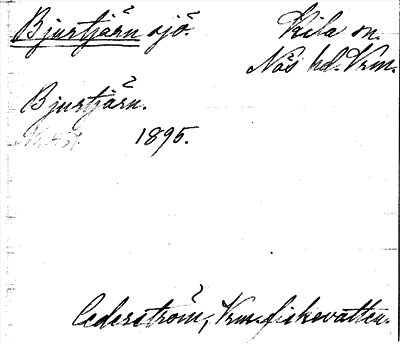 Bjurtjärn sjö. Kila sn.
Näs hd. Vrm.
Bjurtjärn.
1895.
Cederström, Vrm. fiskevatten.